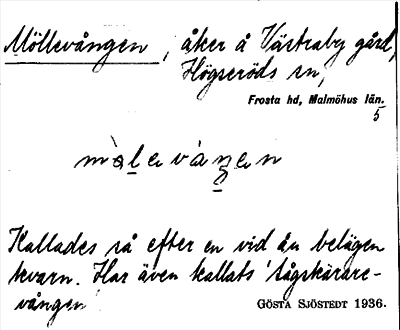 Möllevången, åker å Västraby gård,
Högseröds sn,
Frosta hd, Malmöhus län.
5
Kallades så efter en vid ån belägen
kvarn. Har även kallats 'Sågskärare-
vången'
GÖSTA SJÖSTEDT 1936.